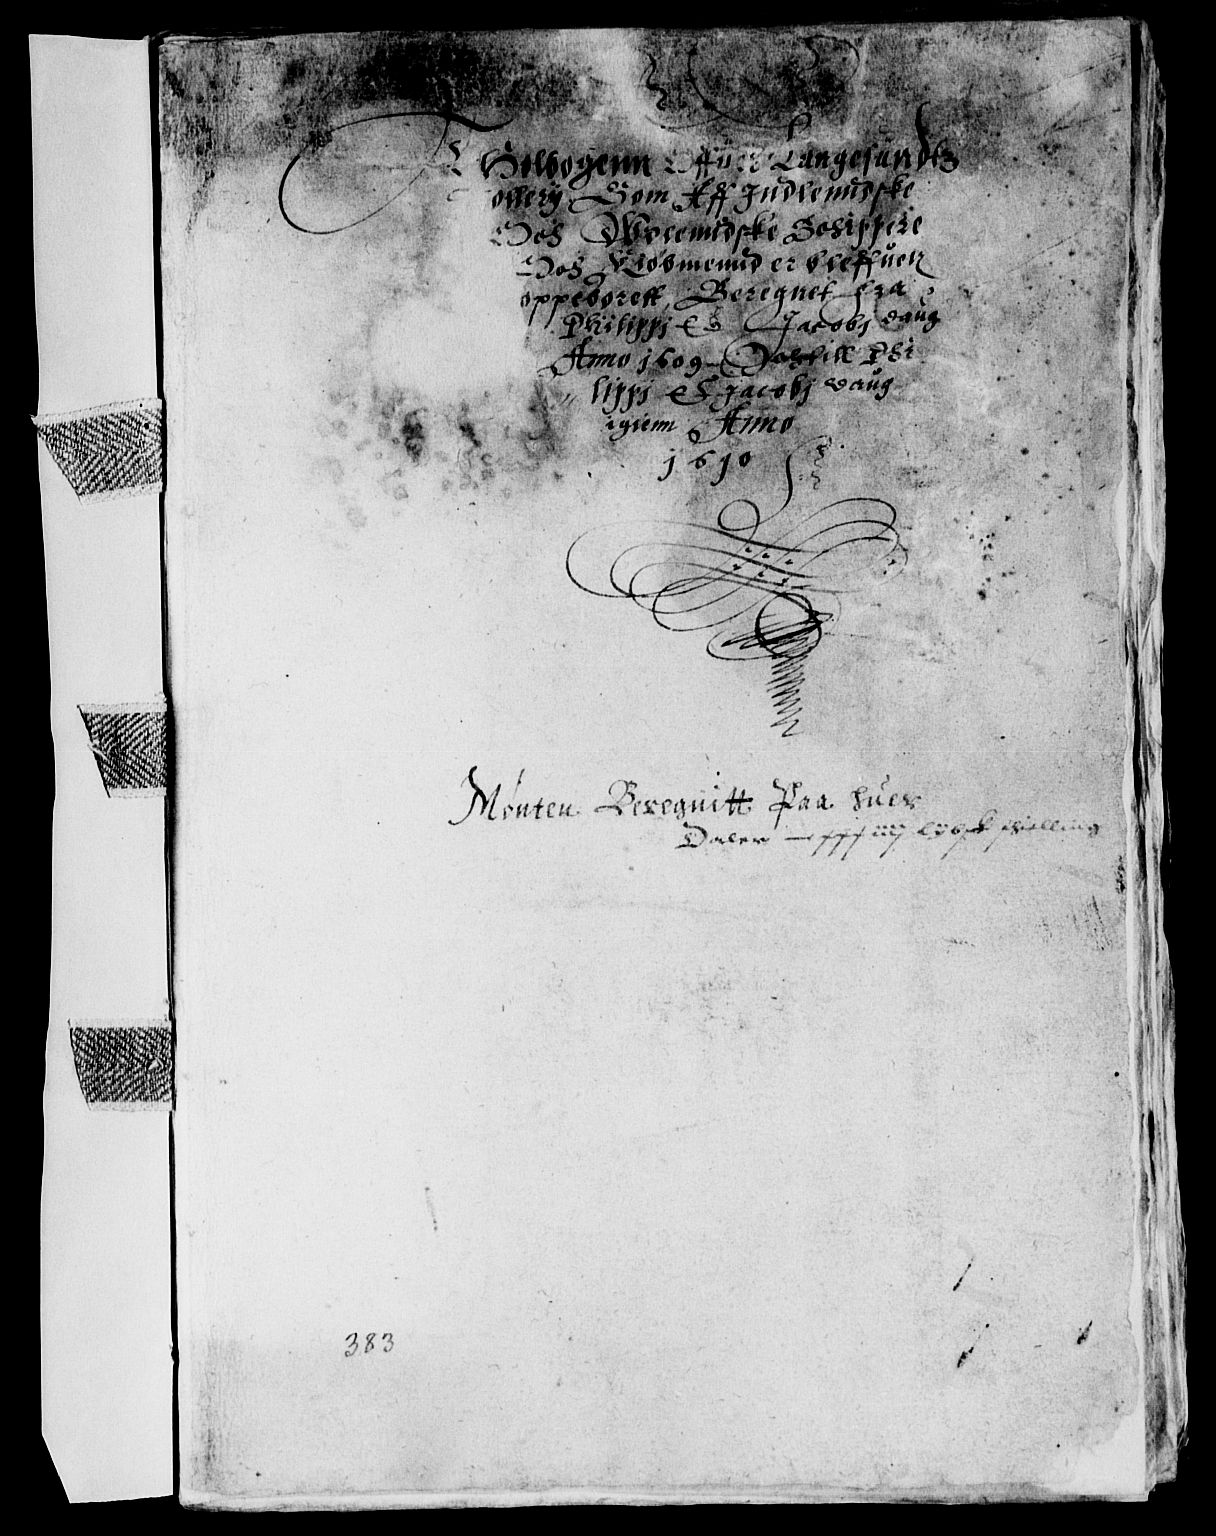 Tolbogenn Offuer Langesundtz
tollerj Som Aff Indlendske
Och Vdlendske Schippere
Och Kiobmennd er bleffuen
oppeboreff, Beregnet fraa
Philippj Et Jacobj daug
Anno 1609 Och till Phi
lippj Et Jacobj daug
igienn Anno
1610
Mønten Beregnitt Paa huer
Daler lybsk schelling
383